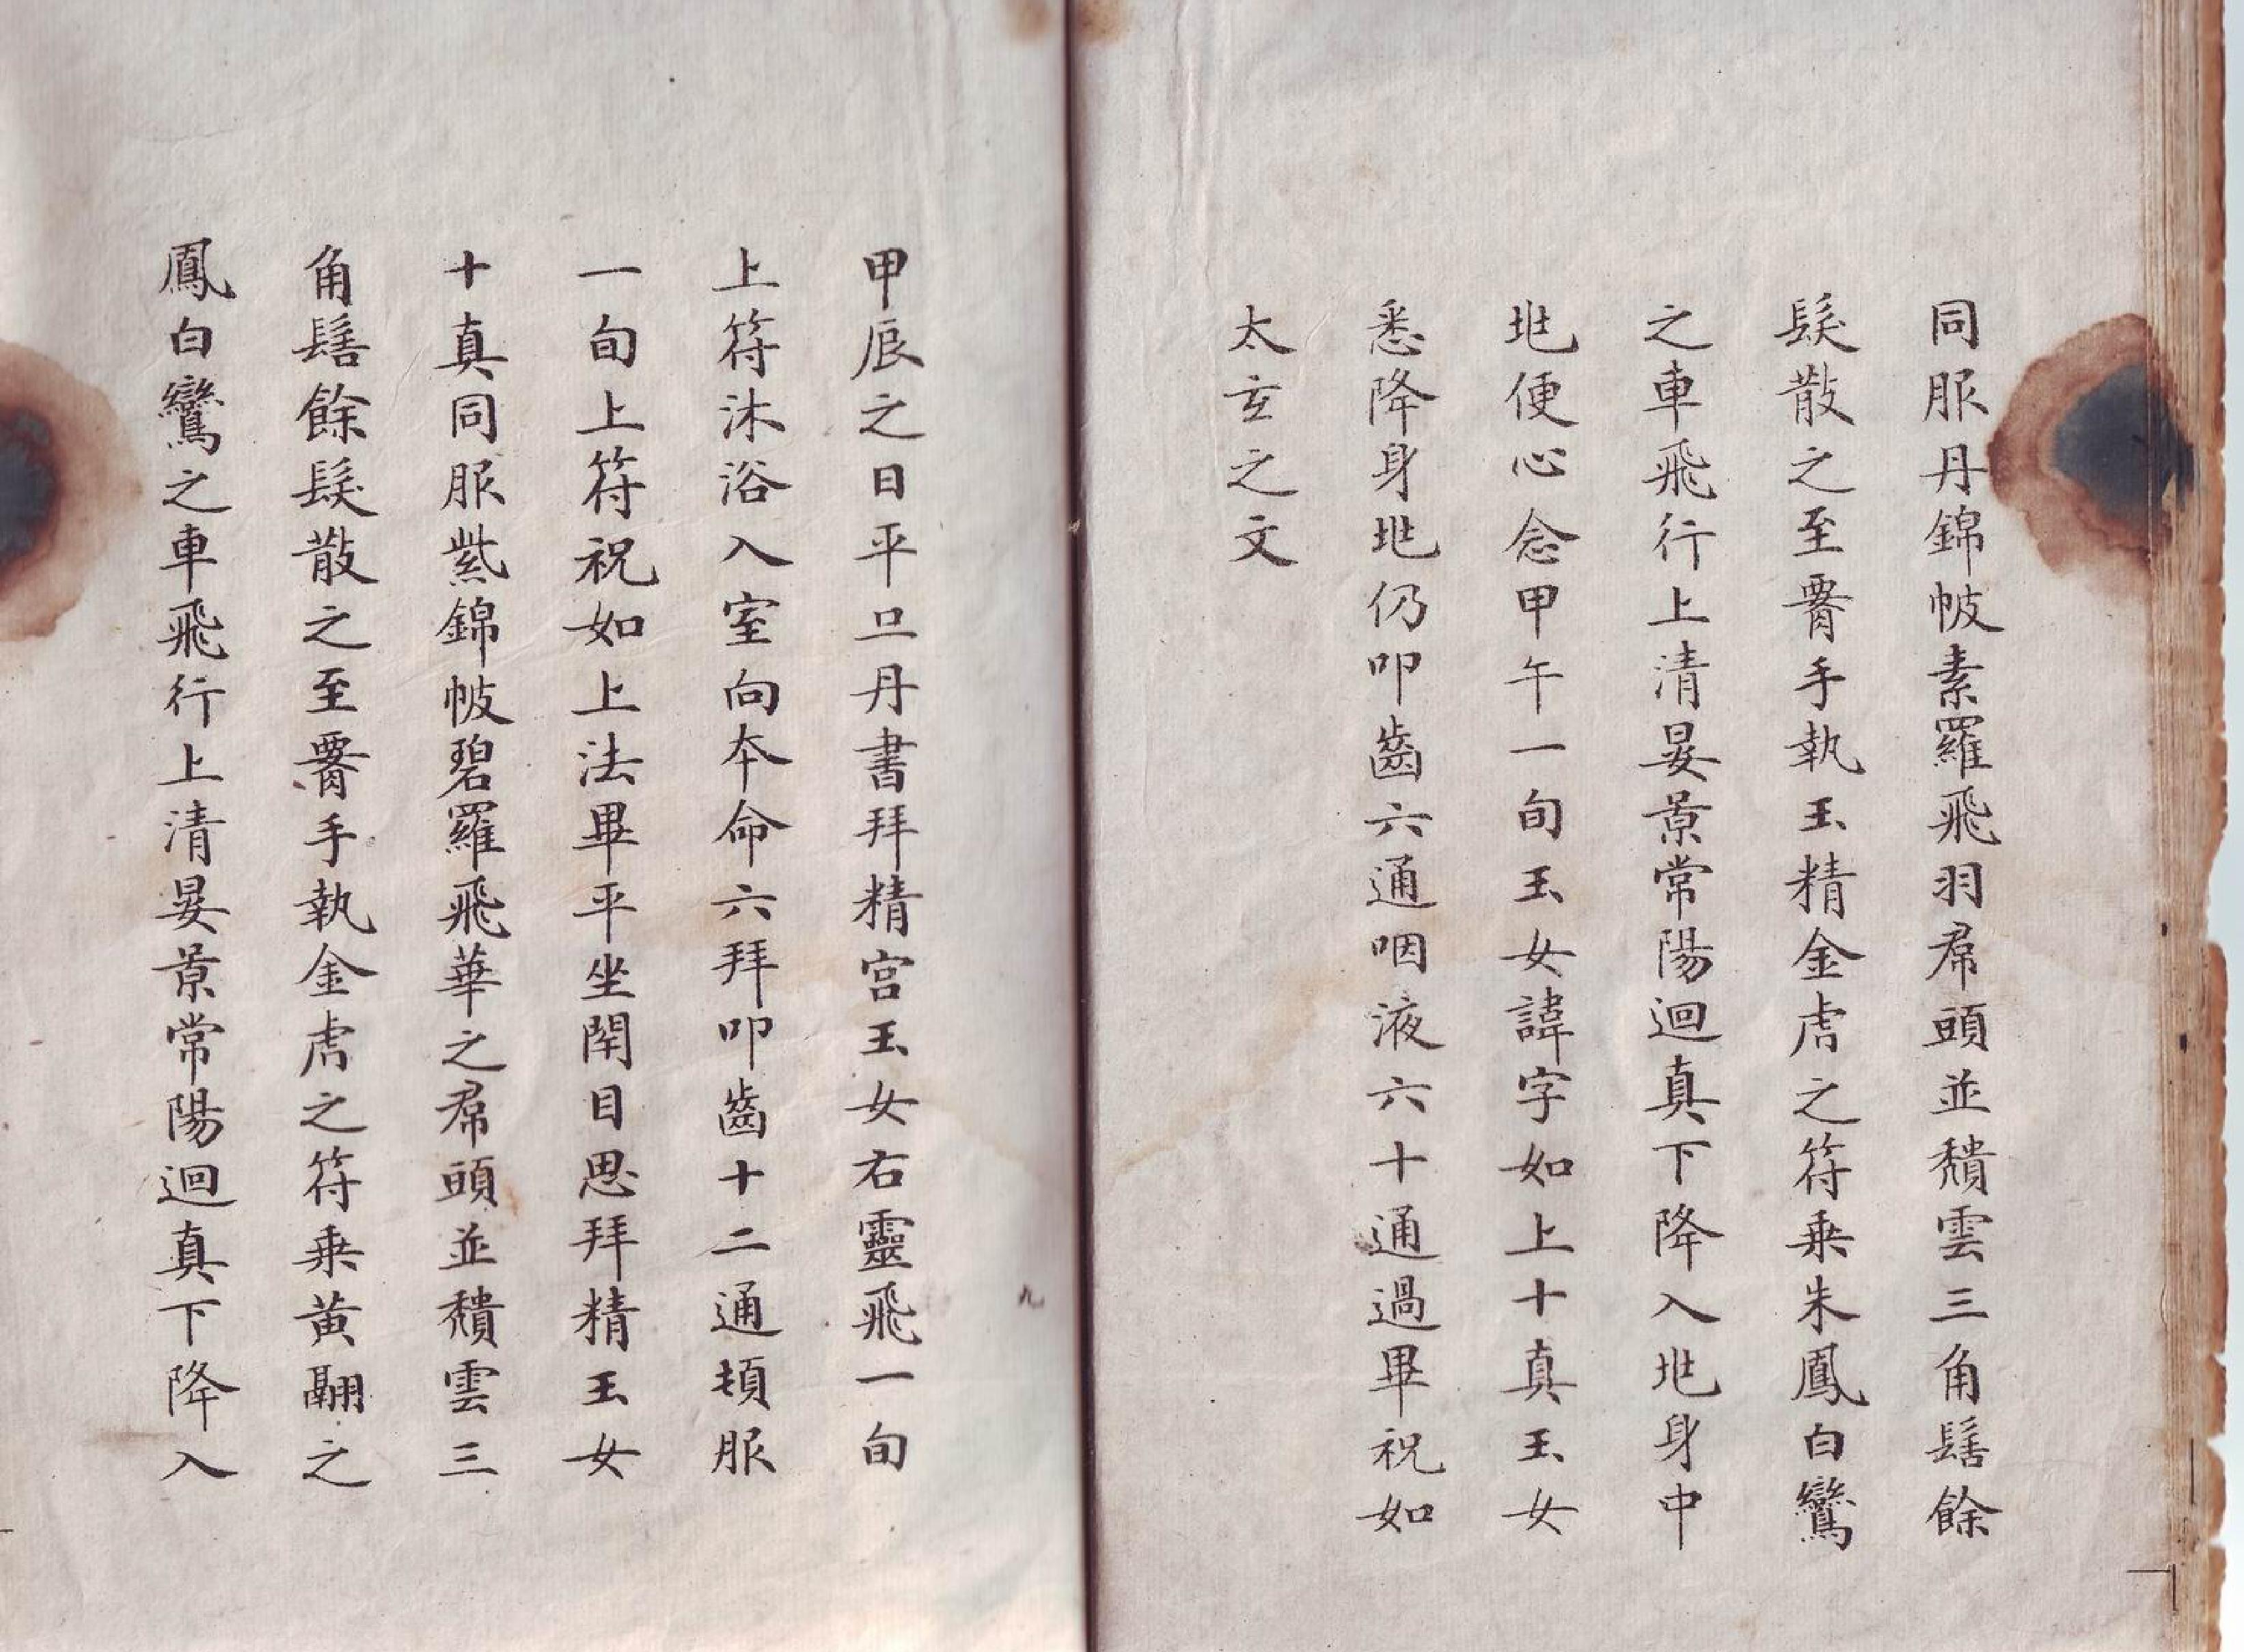 同服丹錦帔素羅飛羽帬頭並穨雲三角髻餘
髮散之至臀手執玉精金虎之符乗朱鳳白鸞
之車飛行上清晏景常陽迴真下降入兆身中
兆便心念甲午一旬玉女諱字如上十真玉女
悉降身兆仍叩齒六通咽液六十通過畢祝如
太玄之文
甲辰之日平旦丹書拜精宮玉女右靈飛一旬
上符沐浴入室向本命六拜叩齒十二通頓服
一旬上符祝如上法畢平坐閇目思拜精玉女
十真同服紫錦帔碧羅飛華之帬頭並穨雲三
角髻餘髮散之至臀手執金虎之符乗黄翮之
鳳白鸞之車飛行上清晏景常陽迴真下降入